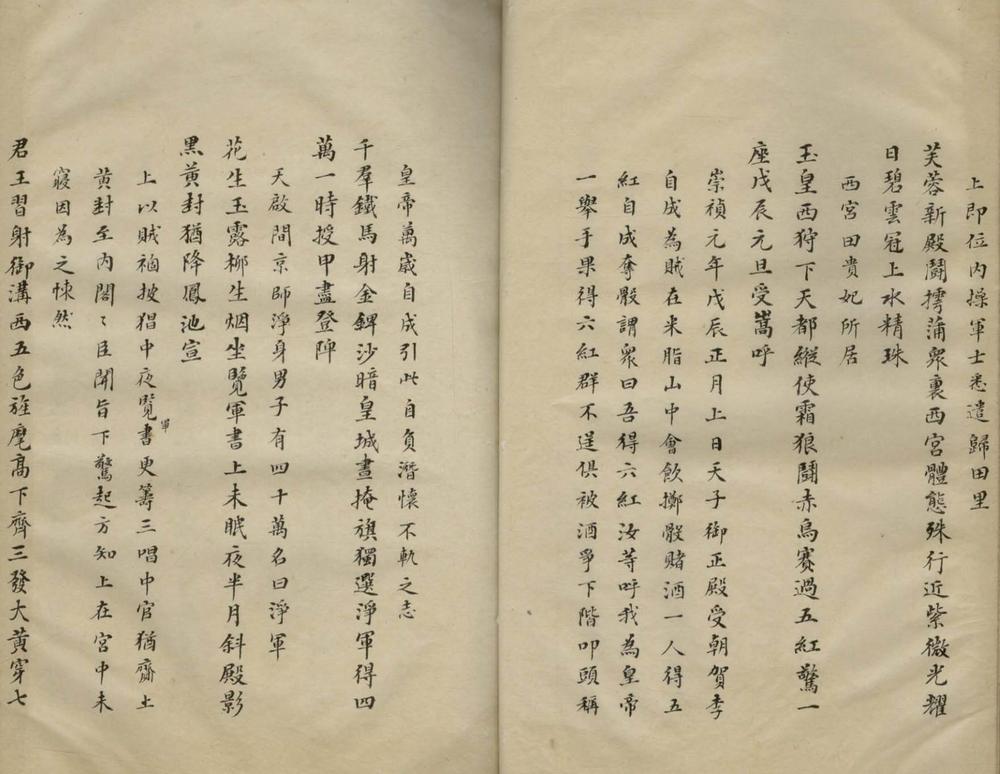 上即位內操軍士悉遣歸田里
芙蓉新殿鬪摴蒲衆裏西宮體態殊行近紫微光耀
日碧雲冠上水精珠
西宮田貴妃所居
玉皇西狩下天都縱使霜狼鬪赤烏賽過五紅驚一
座戊辰元旦受嵩呼
崇禎元年戊辰正月上日天子御正殿受朝賀李
自成為賊在米脂山中會飲擲骰賭酒一人得五
紅自成奪骰謂衆曰吾得六紅汝等呼我為皇帝
一舉手果得六紅群不逞俱被酒爭下階叩頭稱
皇帝萬歲自成引此自負潛懷不軌之志
千羣鐵馬射金錍沙暗皇城晝掩旗獨選淨軍得四
萬一時授甲盡登陴
天啟間京師淨身男子有四十萬名曰淨軍
花生玉露柳生烟坐覽軍書上未眠夜半月斜殿影
黑黃封猶降鳳池宣
上以賊禍披猖中夜覽軍書更籌三唱中官猶齎上
黃封至內閣〻臣開旨下驚起方知上在宮中未
寢因為之悚然
君王習射御溝西五色旌麾高下齊三發大黃穿七